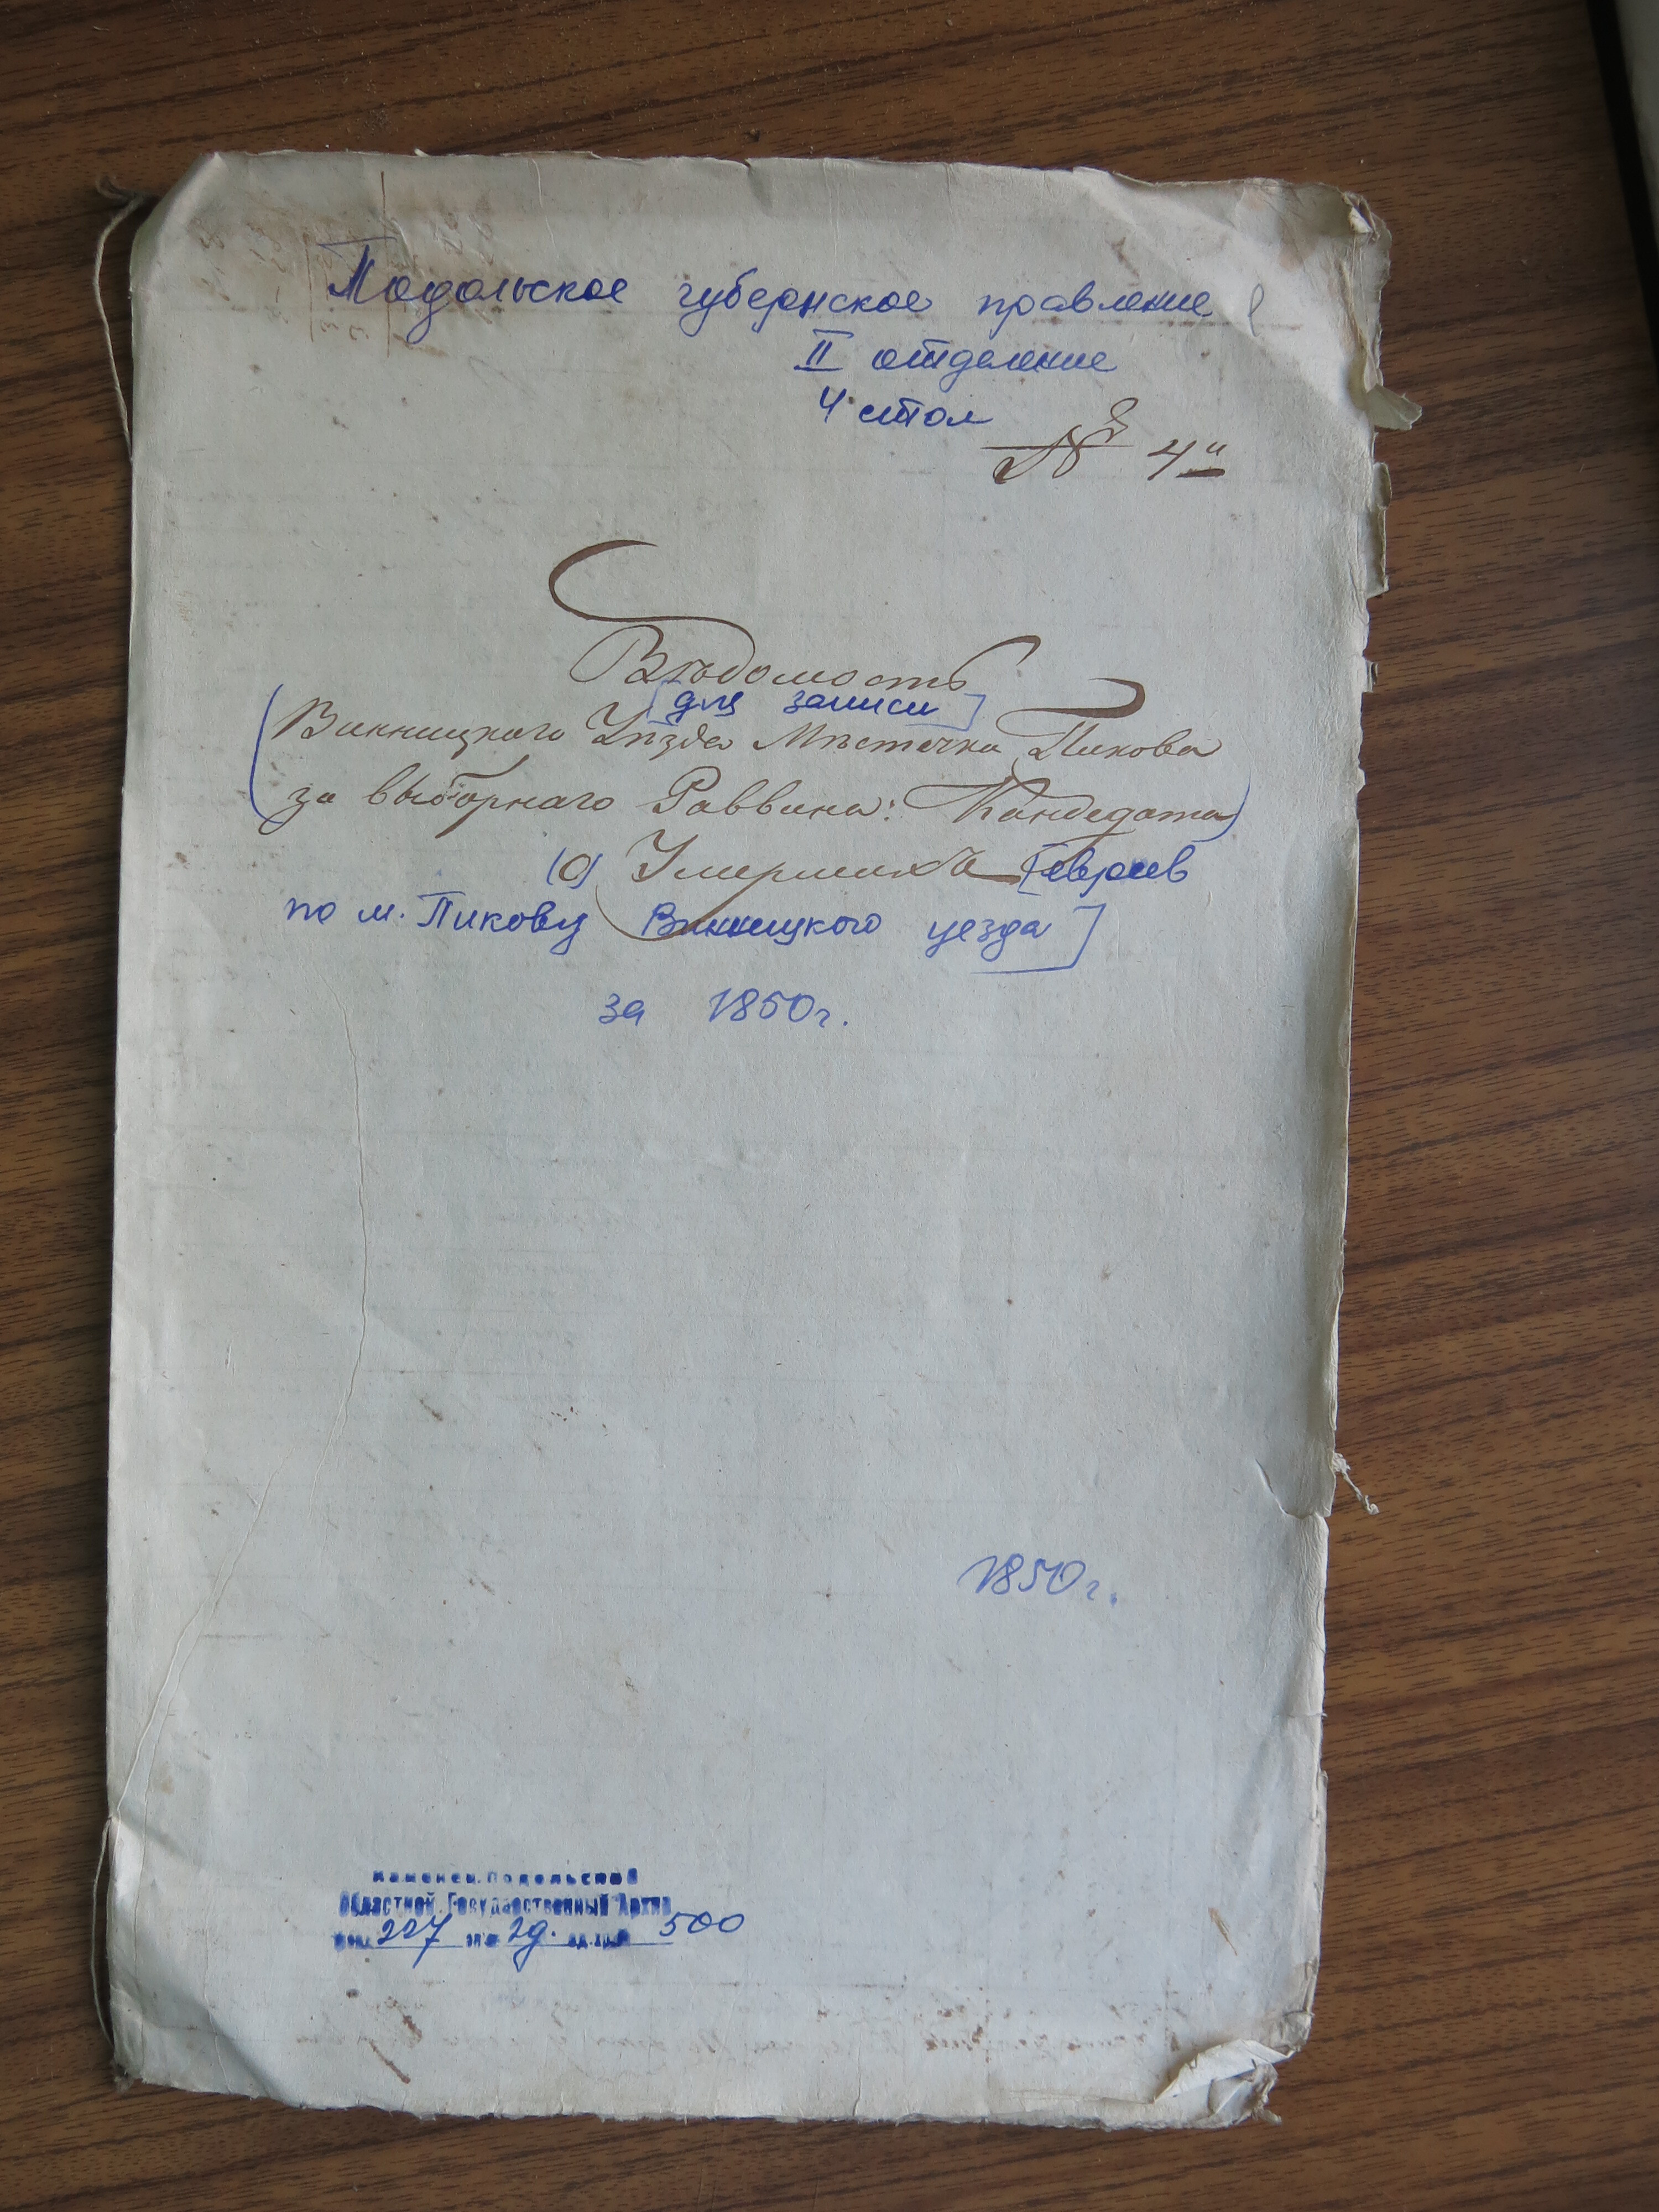 Подольское губернское правление
II отделение
4 стол
№ 4й
Вѣдомость
[для записи]
(Винницкого Уѣзда Мѣстечка Пикова
за выборнаго Раввина: Кандедата)
(О) Умершихъ [евреев
по м. Пикову Винницкого уезда]
за 1850г.
1850г.
Каменец.Подольский
Областной Государственный Архив
Фонд 227 оп. 2д. ед.хр. 500